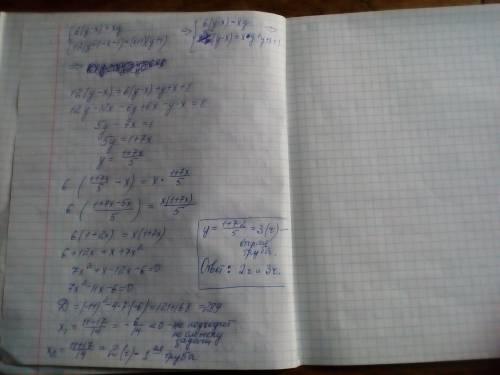 { 6(y-x) = xy => { 6(y-x) = xy
12(y+1-x-1) = (x+1)(y+1) (y-x) = x·y+y+x+1
=>
12(y-x) = 6(y-x)+y+x+1
12y-12x-6y+6x-y-x=1
5y-7x=1
5y=1+7x
y = (1+7x)/5
6((1+7x)/5 - x) = x · (1+7x)/5
6((1+7x-5x)/5) = x(1+7x)/5
6(1+2x) = x(1+7x)
6+12x = x+7x²
7x²+x-12x-6=0
7x²-11x-6=0
D=(-11)²-4·7·(-6)=121+168=289
x₁ = (11-17)/14 = -6/14 <0 - не подходит
по смыслу
задачи
x₂ = (11+17)/14 = 2(ч) - 1ая
труба
y = (1+7·2)/5 = 3(ч) -
вторая
труба.
Ответ: 2ч и 3ч.